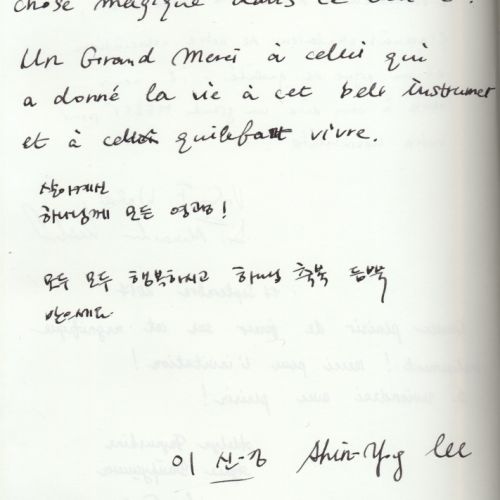 chose magique dans ce
Un Grand Merci à celui qui
a donné la vie à cet bels Instrument
et à celui qui le fait vivre.
살아계신
하나님께 모든 영광!
모두 모두 행복하시고 하나님 축복 듬뿍
받으세요
이 신-경 Shin-Yog Lee